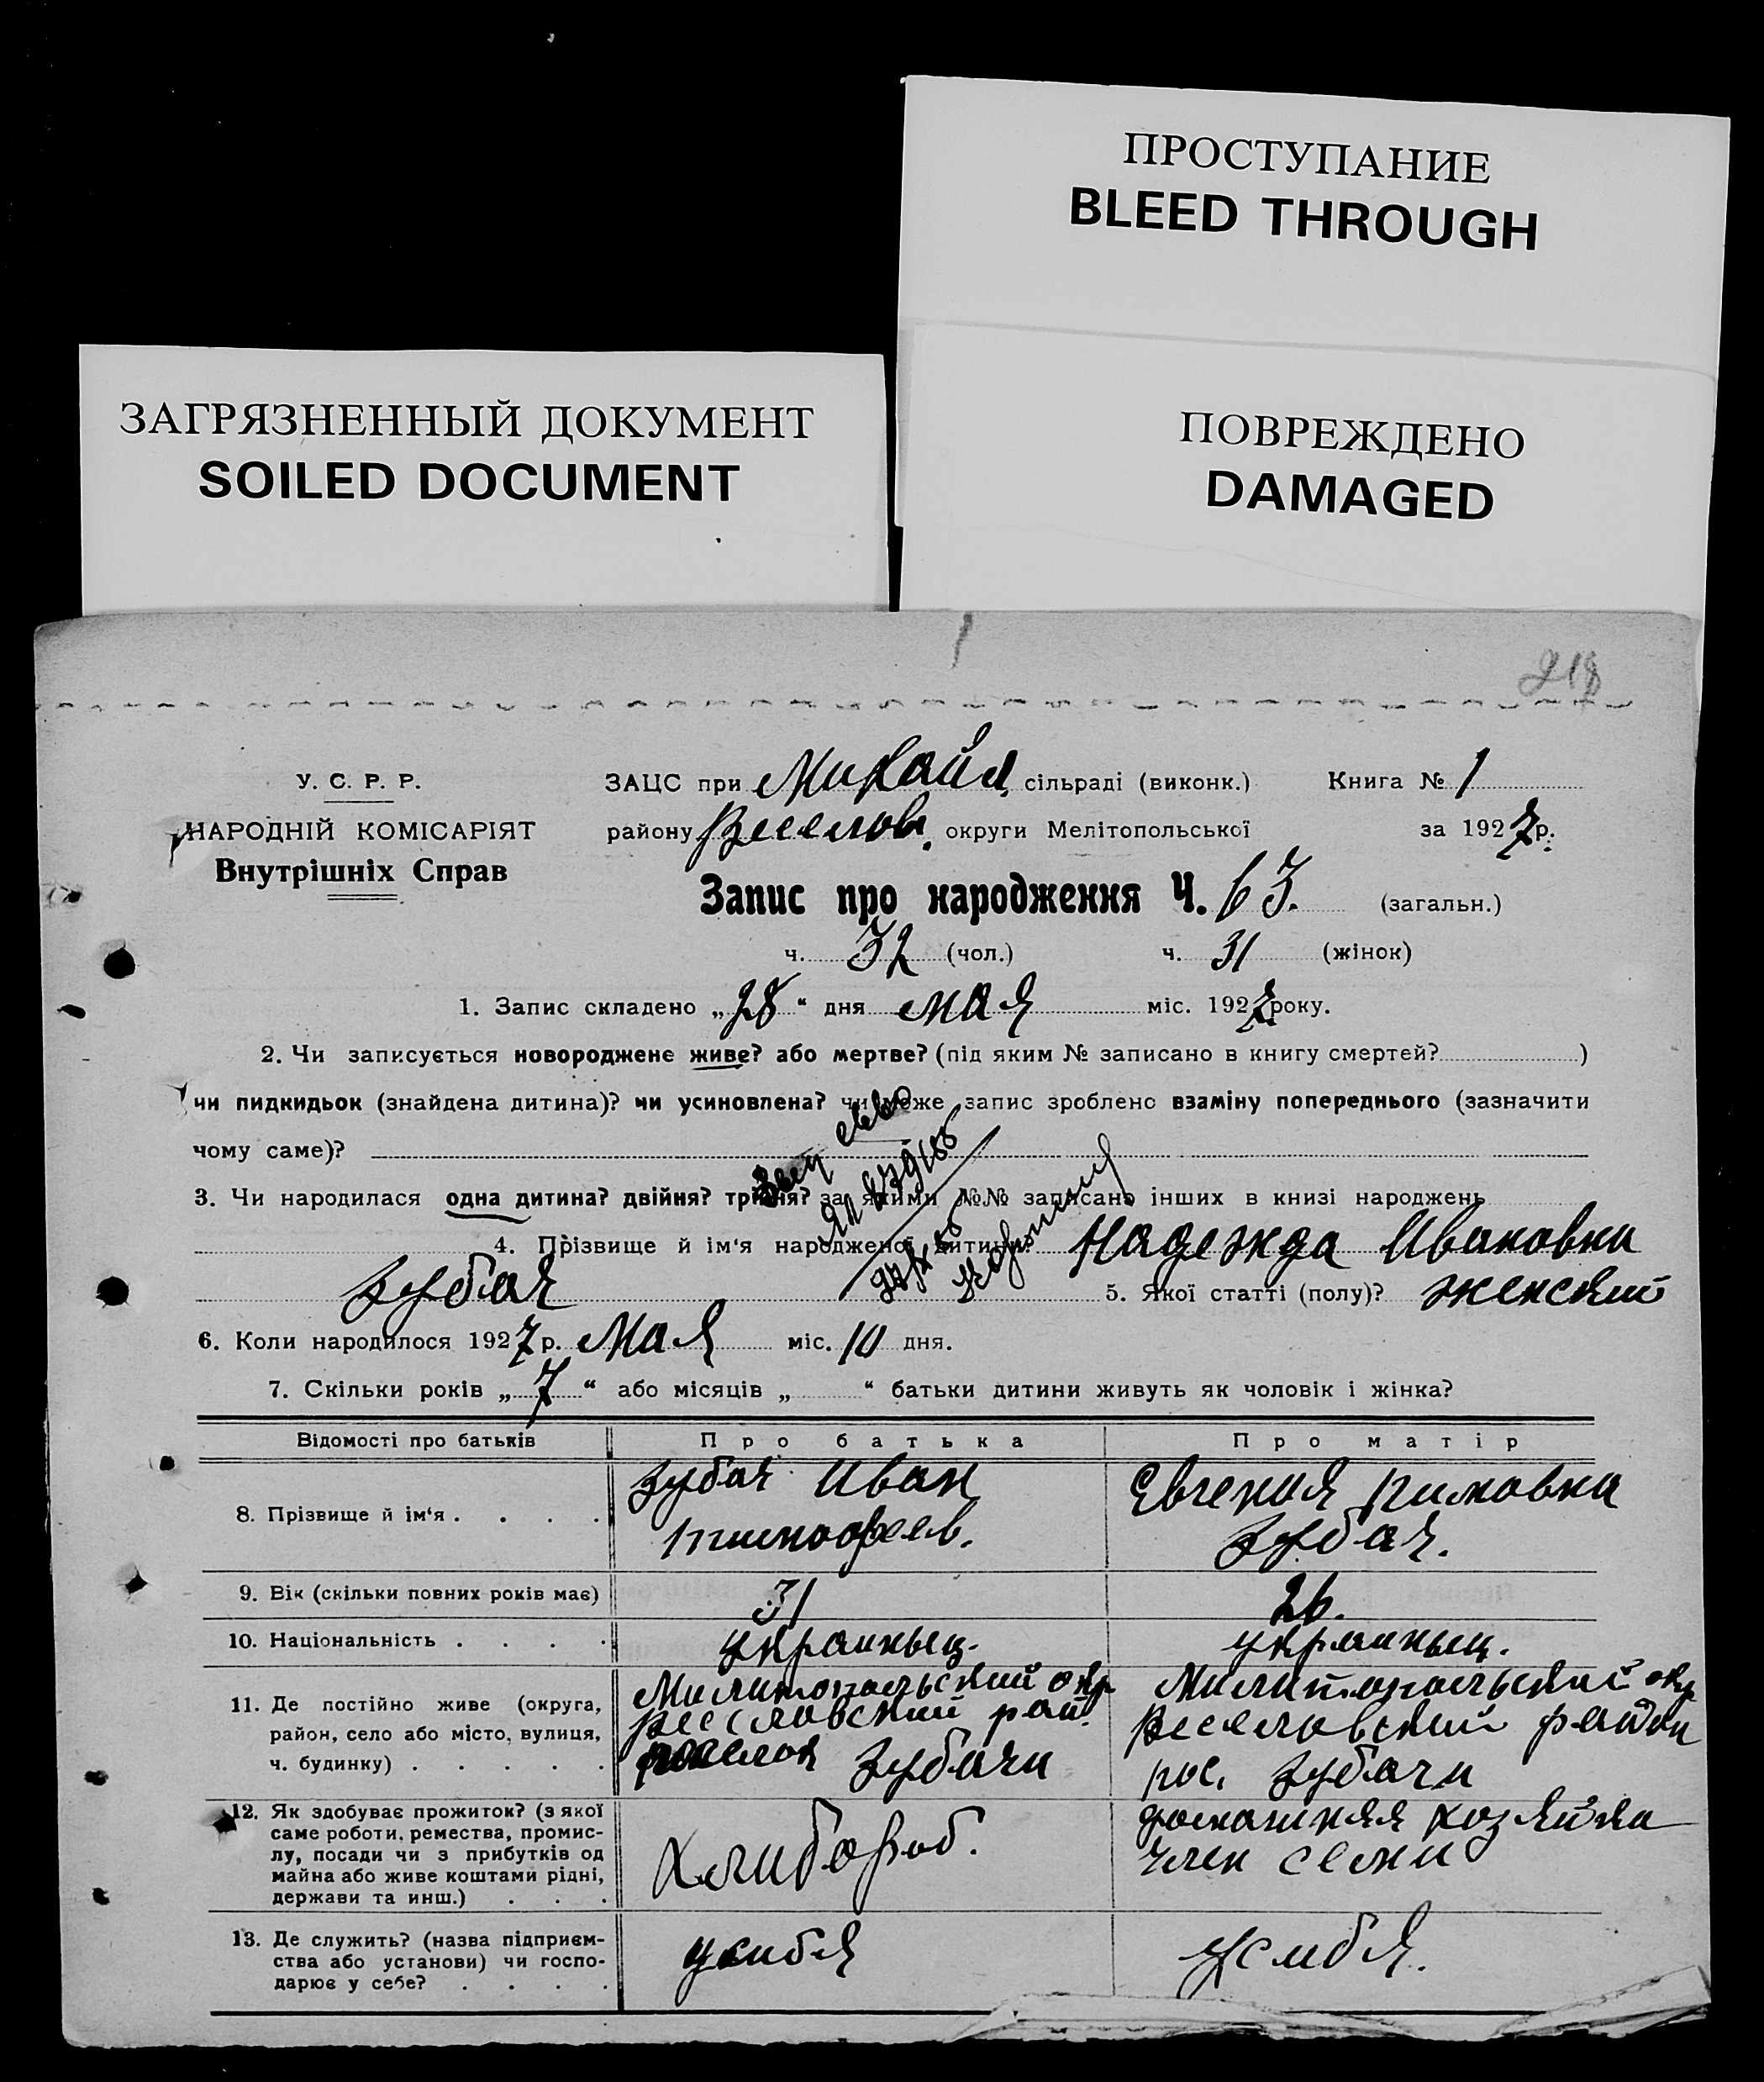 ПРОСТУПАНИЕ
BLEED THROUGH
ЗАГРЯЗНЕННЫЙ ДОКУМЕНТ
SOILED DOCUMENT
ПОВРЕЖДЕНО
DAMAGED
218
У. С. Р. Р.
НАРОДНІЙ КОМІСАРІЯТ
Внутрішніх Справ
ЗАЦС при Михайл. сільраді (виконк.) Книга № 1
району Веселов. округи Мелітопольської за 1927 р.
Запис про народження Ч. 63. (загальн.)
ч. 32 (чол.) ч. 31 (жінок)
1. Запис складено „28“ дня мая міс. 1927 року.
2. Чи записується новороджене живе? або мертве? (під яким № записано в книгу смертей? )
чи пидкидьок (знайдена дитина)? чи усиновлена? чи може запис зроблено взаміну попереднього (зазначити
чому саме)?
3. Чи народилася одна дитина? двійня? трійня? за якими №№ записано інших в книзі народжень
4. Прізвище й ім‘я народженої дитини? Надежда Ивановна
Зубач 5. Якої статті (полу)? женский
6. Коли народилося 1927 р. Мая міс. 10 дня.
7. Скільки років „7“ або місяців „ “ батьки дитини живуть як чоловік і жінка?
Відомості про батьків Про батька Про матір
8. Прізвище й ім‘я . . . .
Зубач Иван
тимофеев.
Евгения
Зубач.
9. Вік (скільки повних років має) 31 26.
10. Національність . . . . украиныец. украиныец.
11. Де постійно живе (округа,
район, село або місто, вулиця,
ч. будинку) . . . . .
Милитопольский окр
Веселовский рай.
поселок Зубачи
Милитопольский окр
Веселовский район
пос. Зубачи
12. Як здобуває прожиток? (з якої
саме роботи, ремества, промис-
лу, посади чи з прибутків од
майна або живе коштами рідні,
держави та инш.) . . .
Хлибороб.
домашняя хозяйка
член семи
13. Де служить? (назва підприєм-
ства або установи) чи госпо-
дарює у себе? . . . .
усибя
усибя.